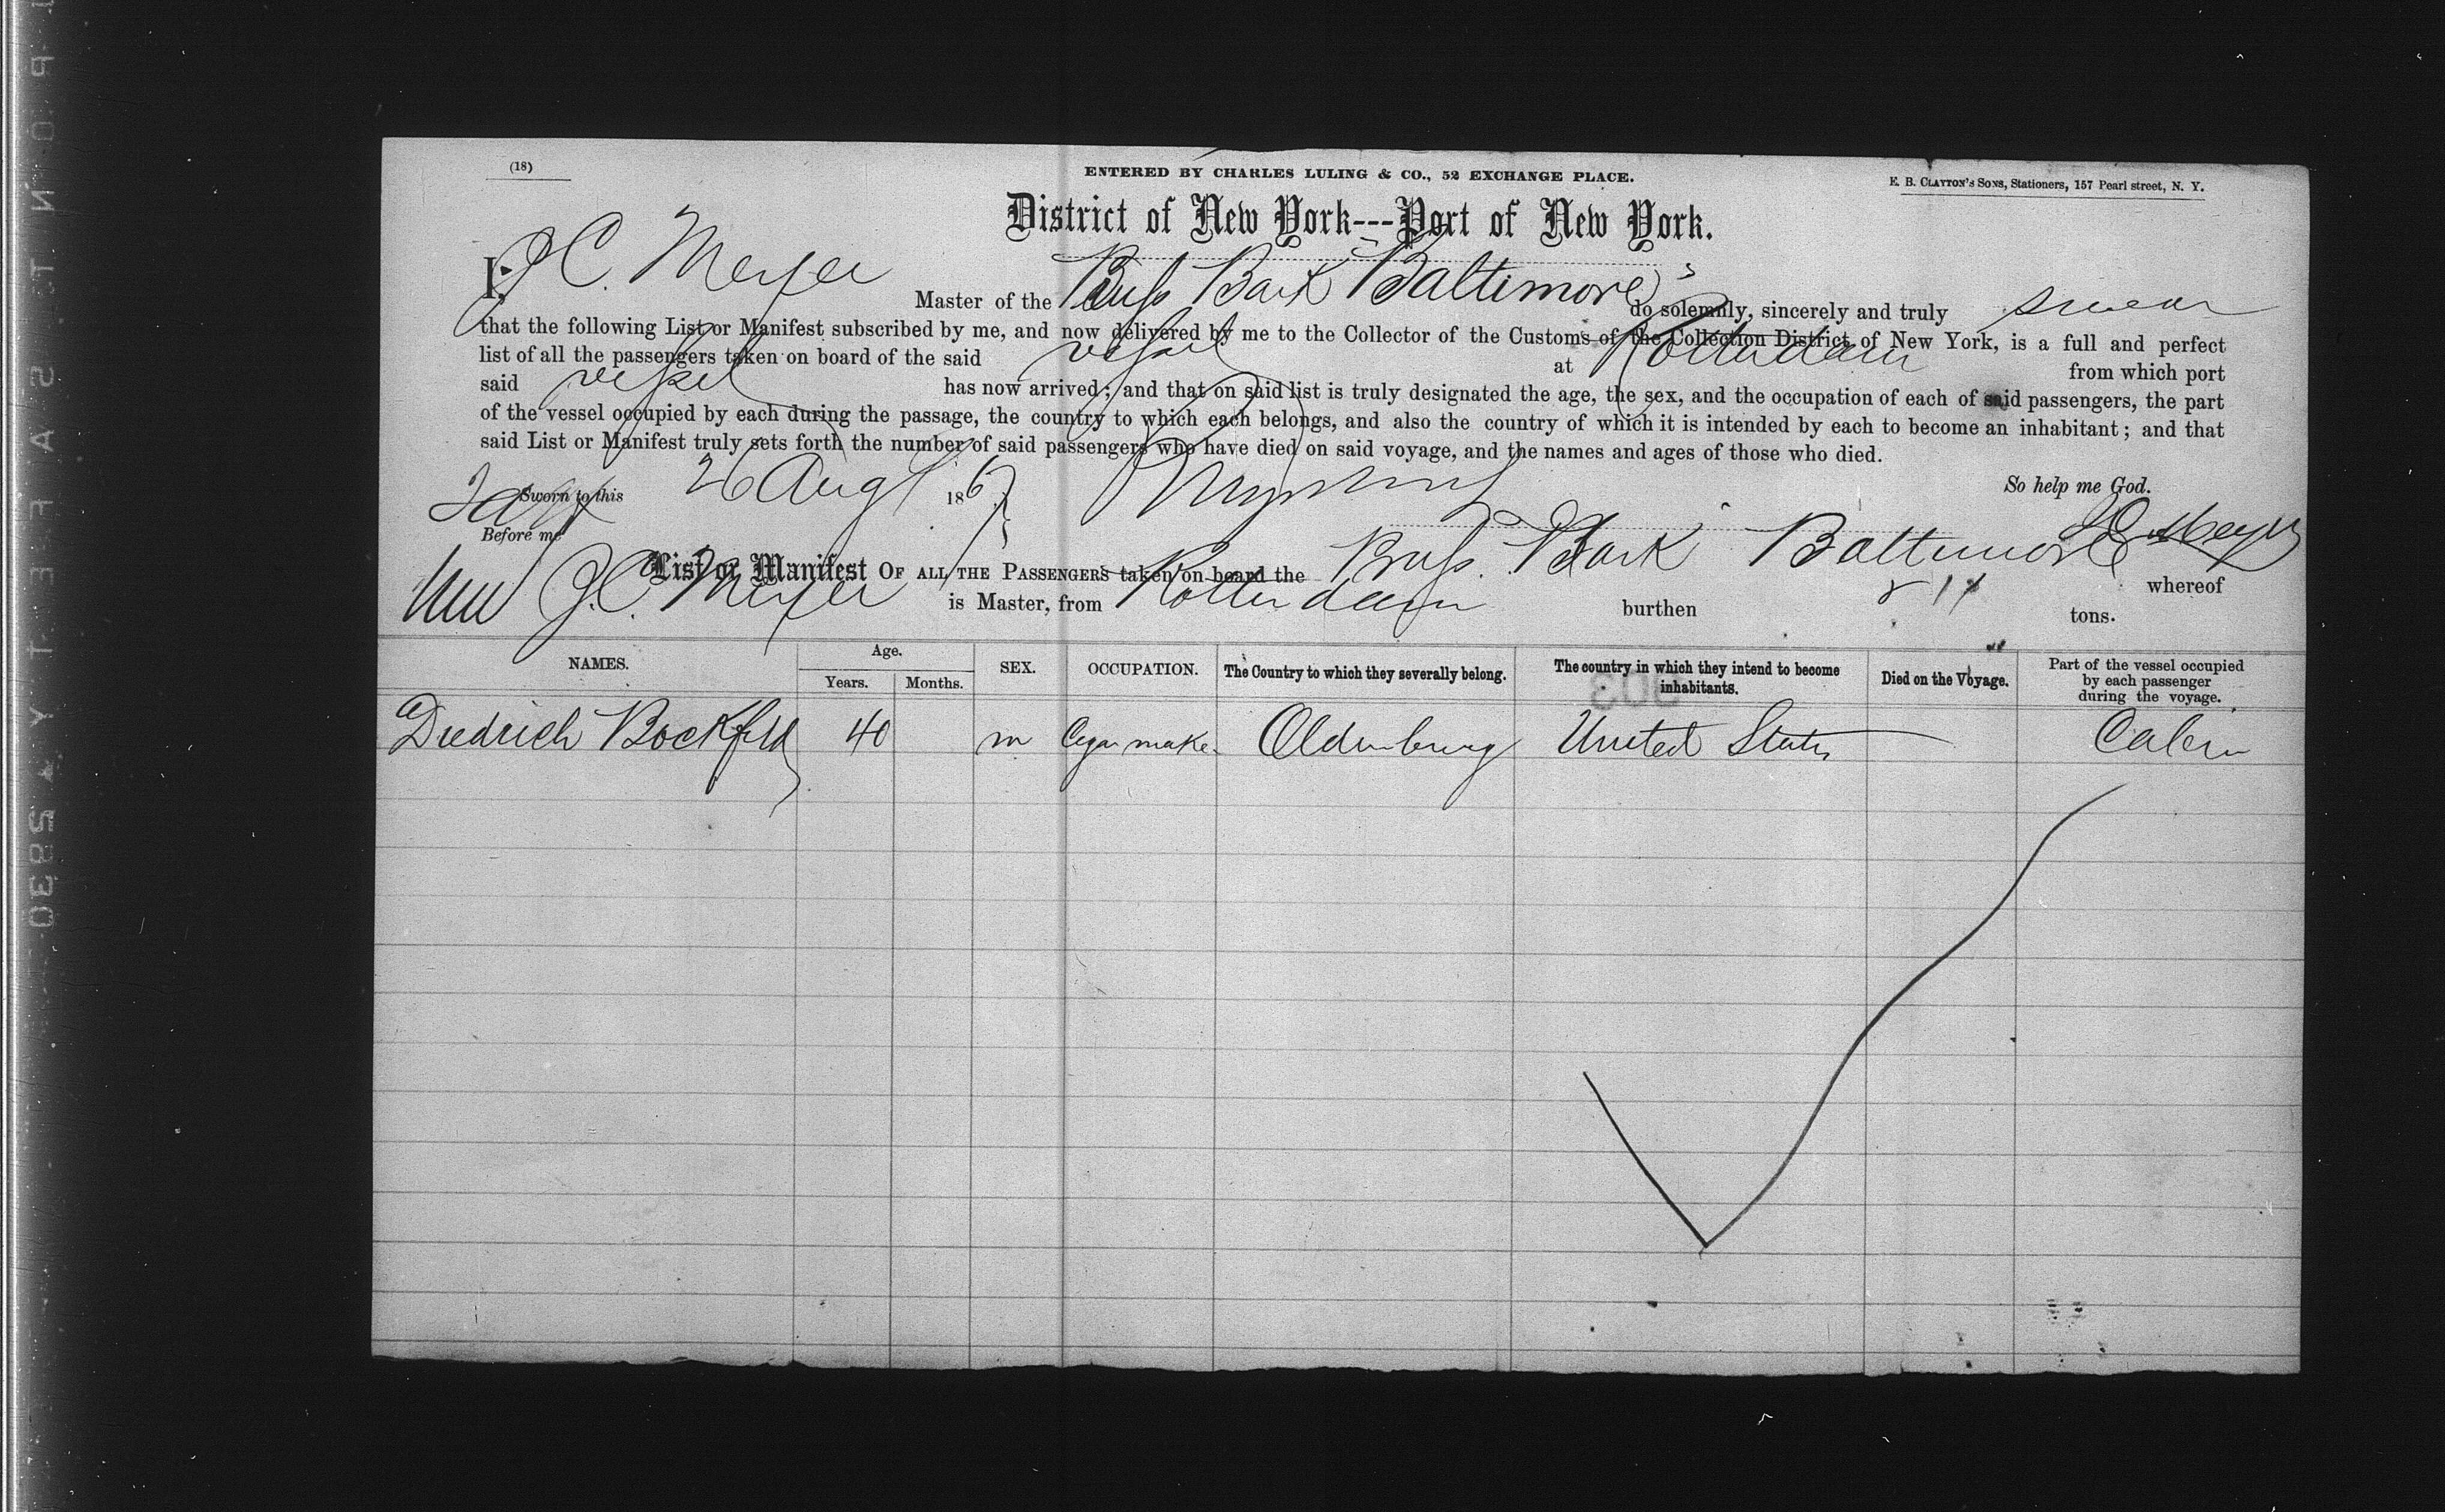 (18)
ENTERED BY CHARLES LULING & CO., 52 EXCHANGE PLACE.
E. B. CLAYTON'S SONS, Stationers, 157 Pearl street, N. Y.
District of New York---Port of New York.
I, J C. Meyer Master of the Bark Baltimore do solemnly, sincerely and truly swear
that the following List or Manifest subscribed by me, and now delivered by me to the Collector of the Customs of the Collection District of New York, is a full and perfect
list of all the passengers taken on board of the said vessel at Rotterdam from which port
said vessel has now arrived; and that on said list is truly designated the age, the sex, and the occupation of each of said passengers, the part
of the vessel occupied by each during the passage, the country to which each belongs, and also the country of which it is intended by each to become an inhabitant; and that
said List or Manifest truly sets forth the number of said passengers who have died on said voyage, and the names and ages of those who died.
Sworn to this 26 Augt 1867 So help me God.
Before me J C Meyer
List or Manifest OF ALL THE PASSENGERS taken on board the Bark Baltimore whereof
J. C. Meyer is Master, from Rotterdam burthen tons.
NAMES. Age. Years. Months. SEX. OCCUPATION. The Country to which they severally belong. The country in which they intend to become inhabitants. Died on the Voyage. Part of the vessel occupied by each passenger during the voyage.
Diedrich Bockfeld 40 m Cigar maker Oldenburg United States Cabin